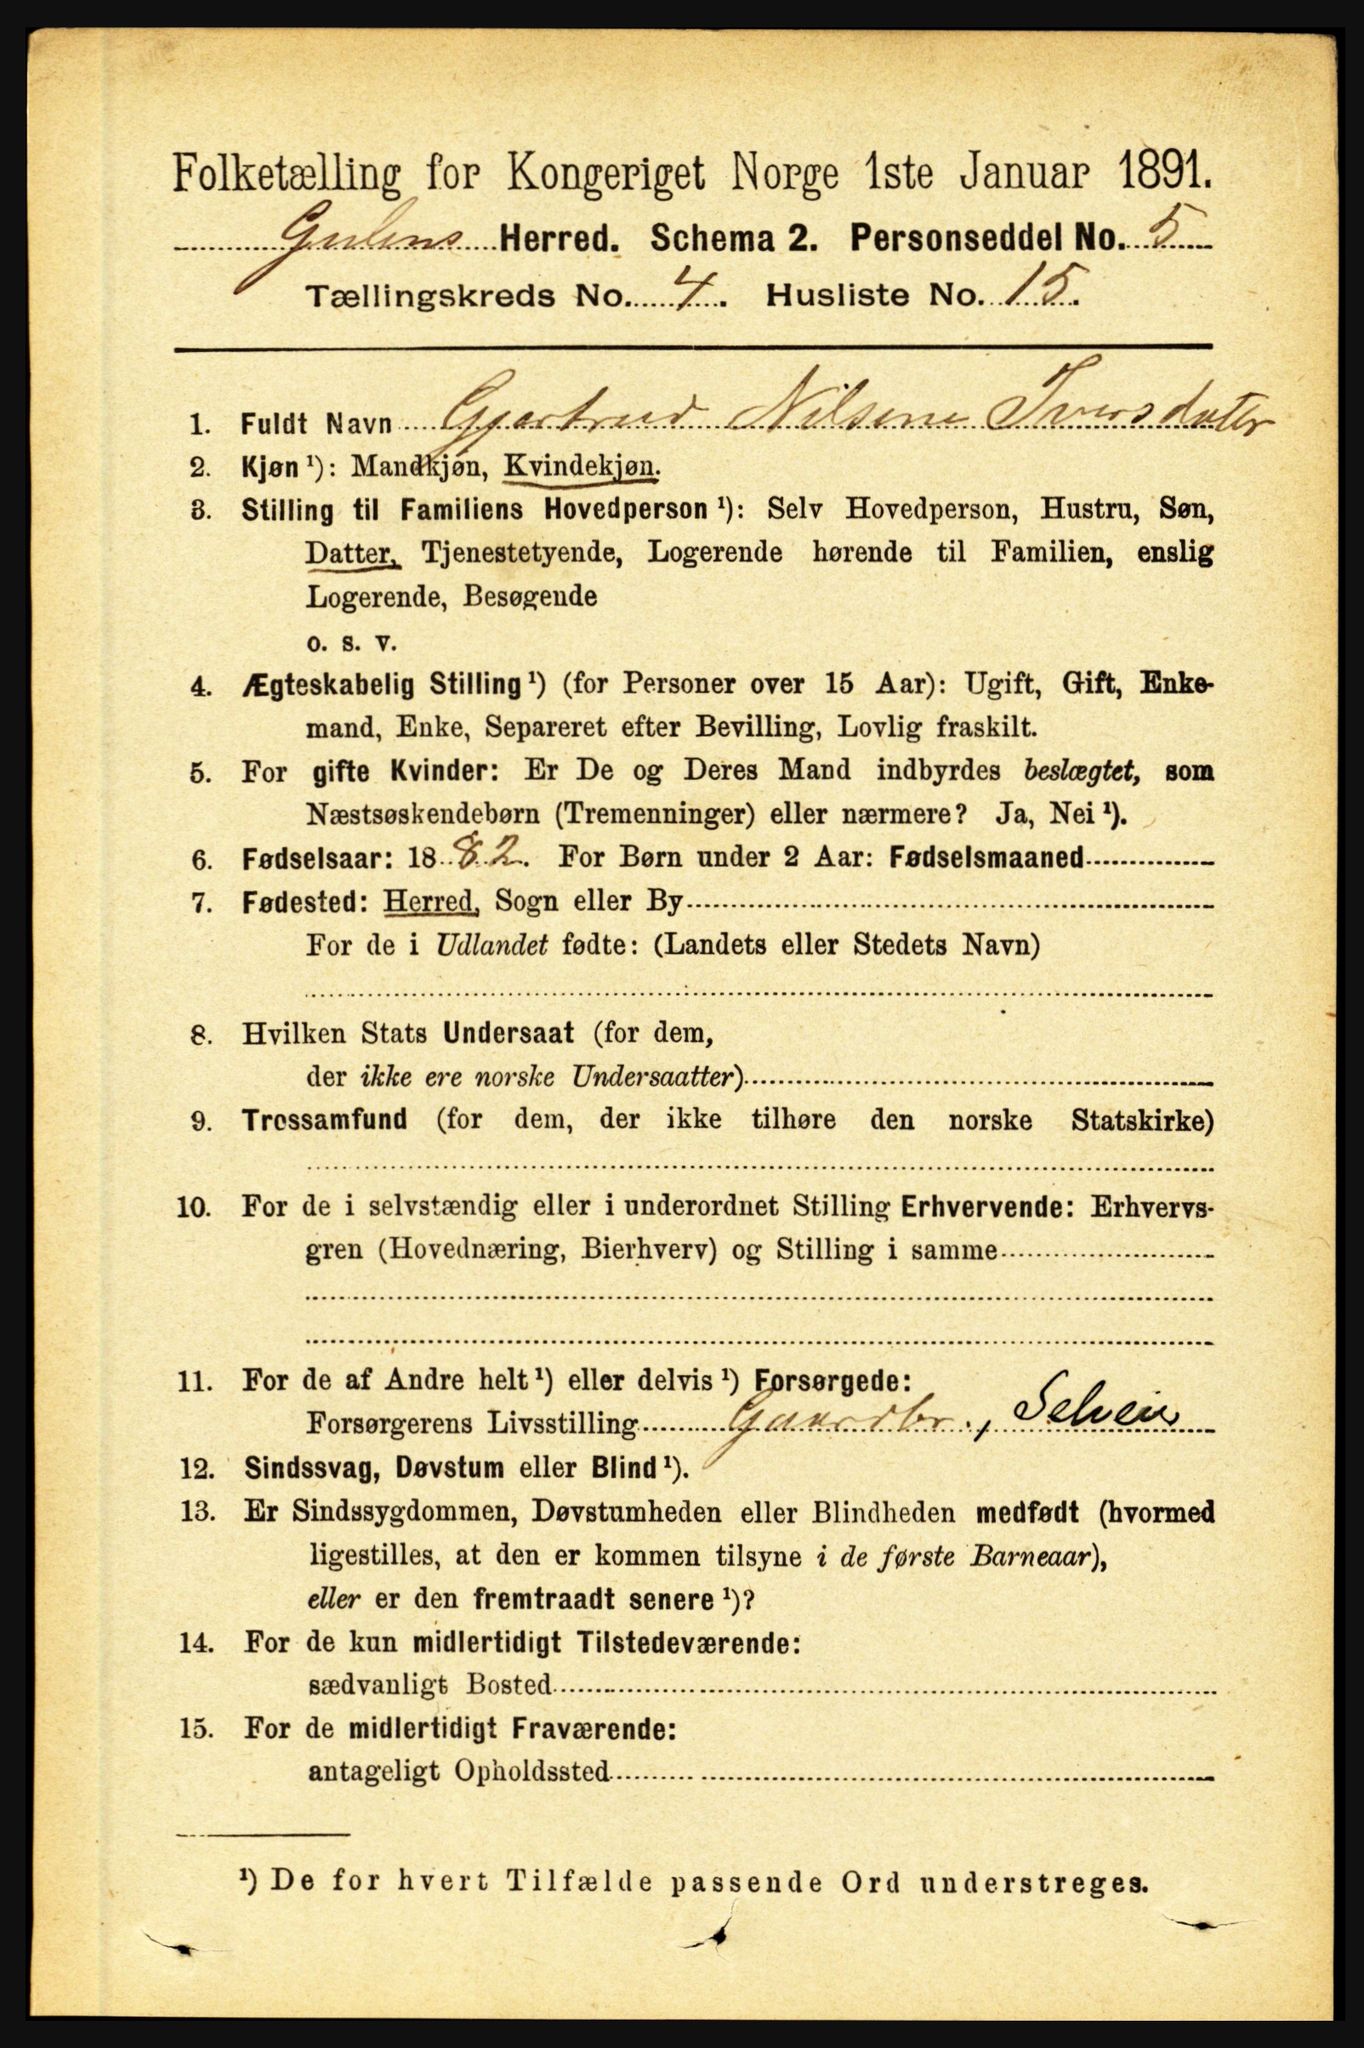 Folketælling for Kongeriget Norge 1ste Januar 1891.
Gulens Herred. Schema 2. Personseddel No. 5
Tællingskreds No. 4. Husliste No. 15.
1. Fuldt Navn Gjertrud Nilsine Iversdatter
2. Kjøn ¹): Mandkjøn, Kvindekjøn.
3. Stilling til Familiens Hovedperson ¹): Selv Hovedperson, Hustru, Søn,
Datter, Tjenestetyende, Logerende hørende til Familien, enslig
Logerende, Besøgende
o. s. v.
4. Ægteskabelig Stilling ¹) (for Personer over 15 Aar): Ugift, Gift, Enke-
mand, Enke, Separeret efter Bevilling, Lovlig fraskilt.
5. For gifte Kvinder: Er De og Deres Mand indbyrdes beslægtet, som
Næstsøskendebørn (Tremenninger) eller nærmere? Ja, Nei ¹).
6. Fødselsaar: 1882. For Børn under 2 Aar: Fødselsmaaned
7. Fødested: Herred, Sogn eller By
For de i Udlandet fødte: (Landets eller Stedets Navn)
8. Hvilken Stats Undersaat (for dem,
der ikke ere norske Undersaatter)
9. Trossamfund (for dem, der ikke tilhøre den norske Statskirke)
10. For de i selvstændig eller i underordnet Stilling Erhvervende: Erhvervs-
gren (Hovednæring, Bierhverv) og Stilling i samme
11. For de af Andre helt ¹) eller delvis ¹) Forsørgede:
Forsørgerens Livsstilling Gaardbr., Selveier
12. Sindssvag, Døvstum eller Blind ¹).
13. Er Sindssygdommen, Døvstumheden eller Blindheden medfødt (hvormed
ligestilles, at den er kommen tilsyne i de første Barneaar),
eller er den fremtraadt senere ¹)?
14. For de kun midlertidigt Tilstedeværende:
sædvanligt Bosted
15. For de midlertidigt Fraværende:
antageligt Opholdssted
¹) De for hvert Tilfælde passende Ord understreges.